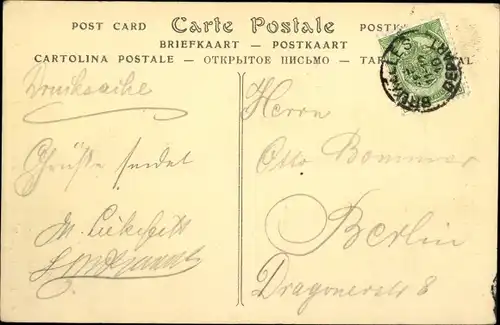 POST CARD Carte Postale POSTK
BRIEFKAART — POSTKAART
CARTOLINA POSTALE — ОТКРЫТОЕ ПИСЬМО — TAR AL
Drucksache
Grüße sendet
M.
Herrn
Otto Bommer
Berlin
Dragonerstr 8